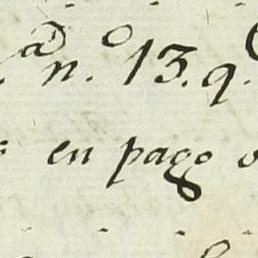 n.º 13. q.
en pago